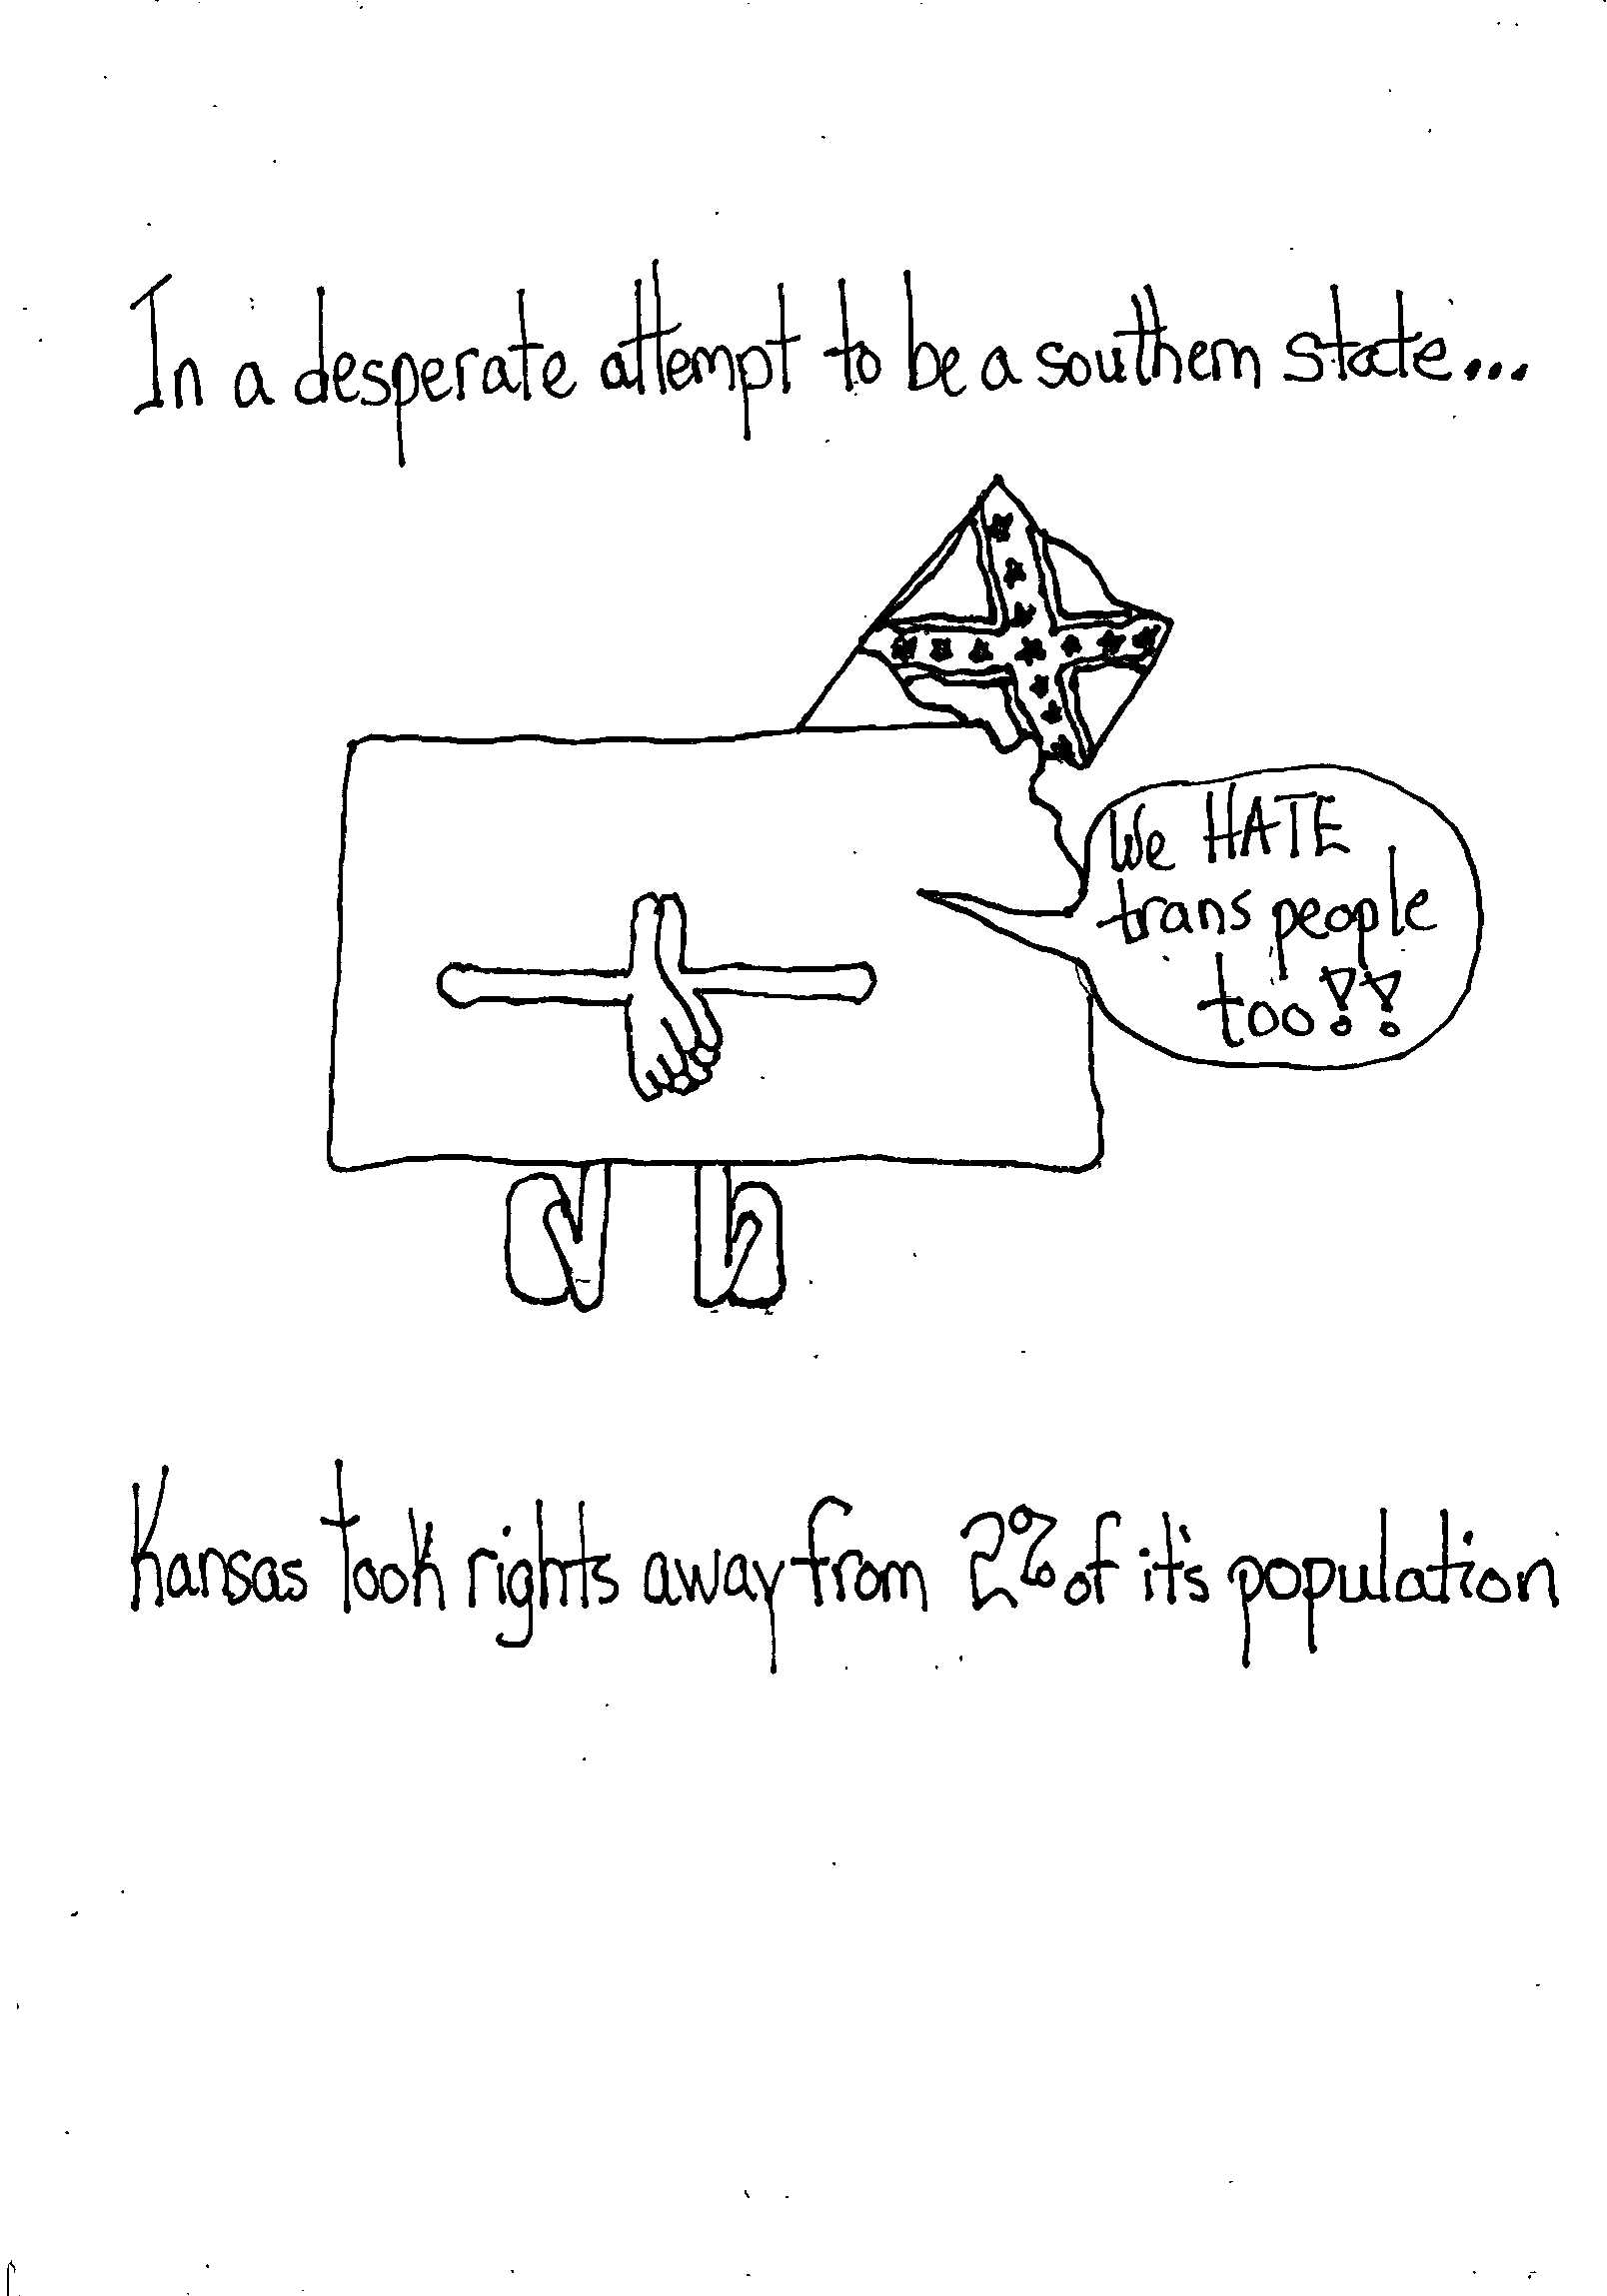 In a desperate attempt to be a southern state...
We HATE
trans people
too!!
Kansas took rights away from 2% of it's population